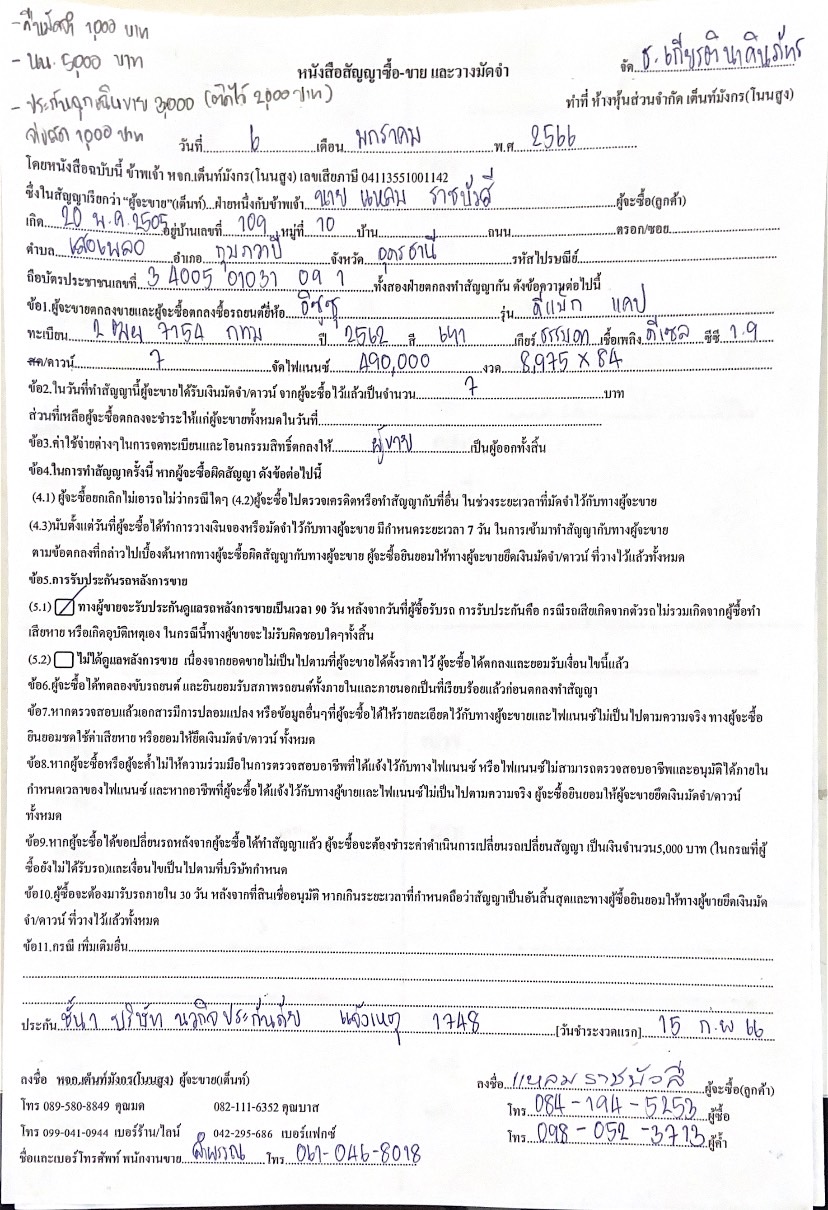 - ค่ามัดจำ 1,000 บาท
- นน. 5,000 บาท
จัด ธ.เกียรตินาคินภัทร
หนังสือสัญญาซื้อ-ขาย และวางมัดจำ
- ประกันฉุกเฉินขาย 3,000 (2,000 บาท)
ทำที่ ห้างหุ้นส่วนจำกัด เต็นท์มังกร(โนนสูง)
จ่ายสด 1,000 บาท
วันที่ 6 เดือน มกราคม พ.ศ 2566
โดยหนังสือฉบับนี้ ข้าพเจ้า หจก.เต็นท์มังกร(โนนสูง) เลขเสียภาษี 04113551001142
ซึ่งในสัญญาเรียกว่า "ผู้จะขาย"(เต็นท์)...ฝ่ายหนึ่งกับข้าพเจ้า นาย แหลม ราชบัวสี ผู้จะซื้อ(ลูกค้า)
เกิด 20 พ.ค. 2505 อยู่บ้านเลขที่ 109 หมู่ที่ 10 บ้าน ถนน ตรอก/ซอย
ตำบล เสอเพลอ อำเภอ กุมภวาปี จังหวัด อุดรธานี รหัสไปรษณีย์
ถือบัตรประชาชนเลขที่ 3 4005 01031 09 1 ทั้งสองฝ่ายตกลงทำสัญญากัน ดังข้อความต่อไปนี้
ข้อ1.ผู้จะขายตกลงขายและผู้จะซื้อตกลงซื้อรถยนต์ยี่ห้อ อีซูซุ รุ่น ดีแม็ก แคป
ทะเบียน 2 ฒฆ 7154 กทม ปี 2562 สี เทา เกียร์ ธรรมดา เชื้อเพลิง ดีเซล ซีซี 1.9
สด/ดาวน์ 7 จัดไฟแนนซ์ 490,000 งวด 8,975 x 84
ข้อ2.ในวันที่ทำสัญญานี้ผู้จะขายได้รับเงินมัดจำ/ดาวน์ จากผู้จะซื้อไว้แล้วเป็นจำนวน 7 บาท
ส่วนที่เหลือผู้จะซื้อตกลงจะชำระให้แก่ผู้จะขายทั้งหมดในวันที่
ข้อ3.ค่าใช้จ่ายต่างๆในการจดทะเบียนและโอนกรรมสิทธิ์ตกลงให้ ผู้ขาย เป็นผู้ออกทั้งสิ้น
ข้อ4.ในการทำสัญญาครั้งนี้ หากผู้จะซื้อผิดสัญญา ดังข้อต่อไปนี้
(4.1) ผู้จะซื้อยกเลิกไม่เอารถไม่ว่ากรณีใดๆ (4.2)ผู้จะซื้อไปตรวจเครดิตหรือทำสัญญากับที่อื่น ในช่วงระยะเวลาที่มัดจำไว้กับทางผู้จะขาย
(4.3)นับตั้งแต่วันที่ผู้จะซื้อได้ทำการวางเงินจองหรือมัดจำไว้กับทางผู้จะขาย มีกำหนดระยะเวลา 7 วัน ในการเข้ามาทำสัญญากับทางผู้จะขาย
ตามข้อตกลงที่กล่าวไปเบื้องต้นหากทางผู้จะซื้อผิดสัญญากับทางผู้จะขาย ผู้จะซื้อยินยอมให้ทางผู้จะขายยึดเงินมัดจำ/ดาวน์ ที่วางไว้แล้วทั้งหมด
ข้อ5.การรับประกันรถหลังการขาย
(5.1) ทางผู้ขายจะรับประกันดูแลรถหลังการขายเป็นเวลา 90 วัน หลังจากวันที่ผู้ซื้อรับรถ การรับประกันคือ กรณีรถเสียเกิดจากตัวรถไม่รวมเกิดจากผู้ซื้อทำ
เสียหาย หรือเกิดอุบัติเหตุเอง ในกรณีนี้ทางผู้ขายจะไม่รับผิดชอบใดๆทั้งสิ้น
(5.2) ไม่ได้ดูแลหลังการขาย เนื่องจากยอดขายไม่เป็นไปตามที่ผู้จะขายได้ตั้งราคาไว้ ผู้จะซื้อได้ตกลงและยอมรับเงื่อนไขนี้แล้ว
ข้อ6.ผู้จะซื้อได้ทดลองขับรถยนต์ และยินยอมรับสภาพรถยนต์ทั้งภายในและภายนอกเป็นที่เรียบร้อยแล้วก่อนตกลงทำสัญญา
ข้อ7.หากตรวจสอบแล้วเอกสารมีการปลอมแปลง หรือข้อมูลอื่นๆที่ผู้จะซื้อได้ให้รายละเอียดไว้กับทางผู้จะขายและไฟแนนซ์ไม่เป็นไปตามความจริง ทางผู้จะซื้อ
ยินยอมชดใช้ค่าเสียหาย หรือยอมให้ยึดเงินมัดจำ/ดาวน์ ทั้งหมด
ข้อ8.หากผู้จะซื้อหรือผู้จะค้ำไม่ให้ความร่วมมือในการตรวจสอบอาชีพที่ได้แจ้งไว้กับทางไฟแนนซ์ หรือไฟแนนซ์ไม่สามารถตรวจสอบอาชีพและอนุมัติได้ภายใน
กำหนดเวลาของไฟแนนซ์ และหากอาชีพที่ผู้จะซื้อได้แจ้งไว้กับทางผู้ขายและไฟแนนซ์ไม่เป็นไปตามความจริง ผู้จะซื้อยินยอมให้ผู้จะขายยึดเงินมัดจำ/ดาวน์
ทั้งหมด
ข้อ9.หากผู้จะซื้อได้ขอเปลี่ยนรถหลังจากผู้จะซื้อได้ทำสัญญาแล้ว ผู้จะซื้อจะต้องชำระค่าดำเนินการเปลี่ยนรถเปลี่ยนสัญญา เป็นเงินจำนวน5,000 บาท (ในกรณที่ผู้
ซื้อยังไม่ได้รับรถ)และเงื่อนไขเป็นไปตามที่บริษัทกำหนด
ข้อ10.ผู้ซื้อจะต้องมารับรถภายใน 30 วัน หลังจากที่สินเชื่ออนุมัติ หากเกินระยะเวลาที่กำหนดถือว่าสัญญาเป็นอันสิ้นสุดและทางผู้ซื้อยินยอมให้ทางผู้ขายยึดเงินมัด
จำ/ดาวน์ ที่วางไว้แล้วทั้งหมด
ข้อ11.กรณี เพิ่มเติมอื่น
ประกัน ชั้น1 บริษัท นวกิจประกันภัย แจ้งเหตุ 1748 [วันชำระงวดแรก] 15 ก.พ 66
ลงชื่อ หจก.เต็นท์มังกร(โนนสูง) ผู้จะขาย(เต็นท์)
ลงชื่อ แหลม ราชบัวสี ผู้จะซื้อ(ลูกค้า)
โทร 089-580-8849 คุณมด 082-111-6352 คุณบาส
โทร 084-194-5253 ผู้ซื้อ
โทร 099-041-0944 เบอร์ร้าน/ไลน์ 042-295-686 เบอร์แฟกซ์
โทร 098-052-3713 ผู้ค้ำ
ชื่อและเบอร์โทรศัพท์ พนักงานขาย ลำพรวณ โทร 061-046-8018